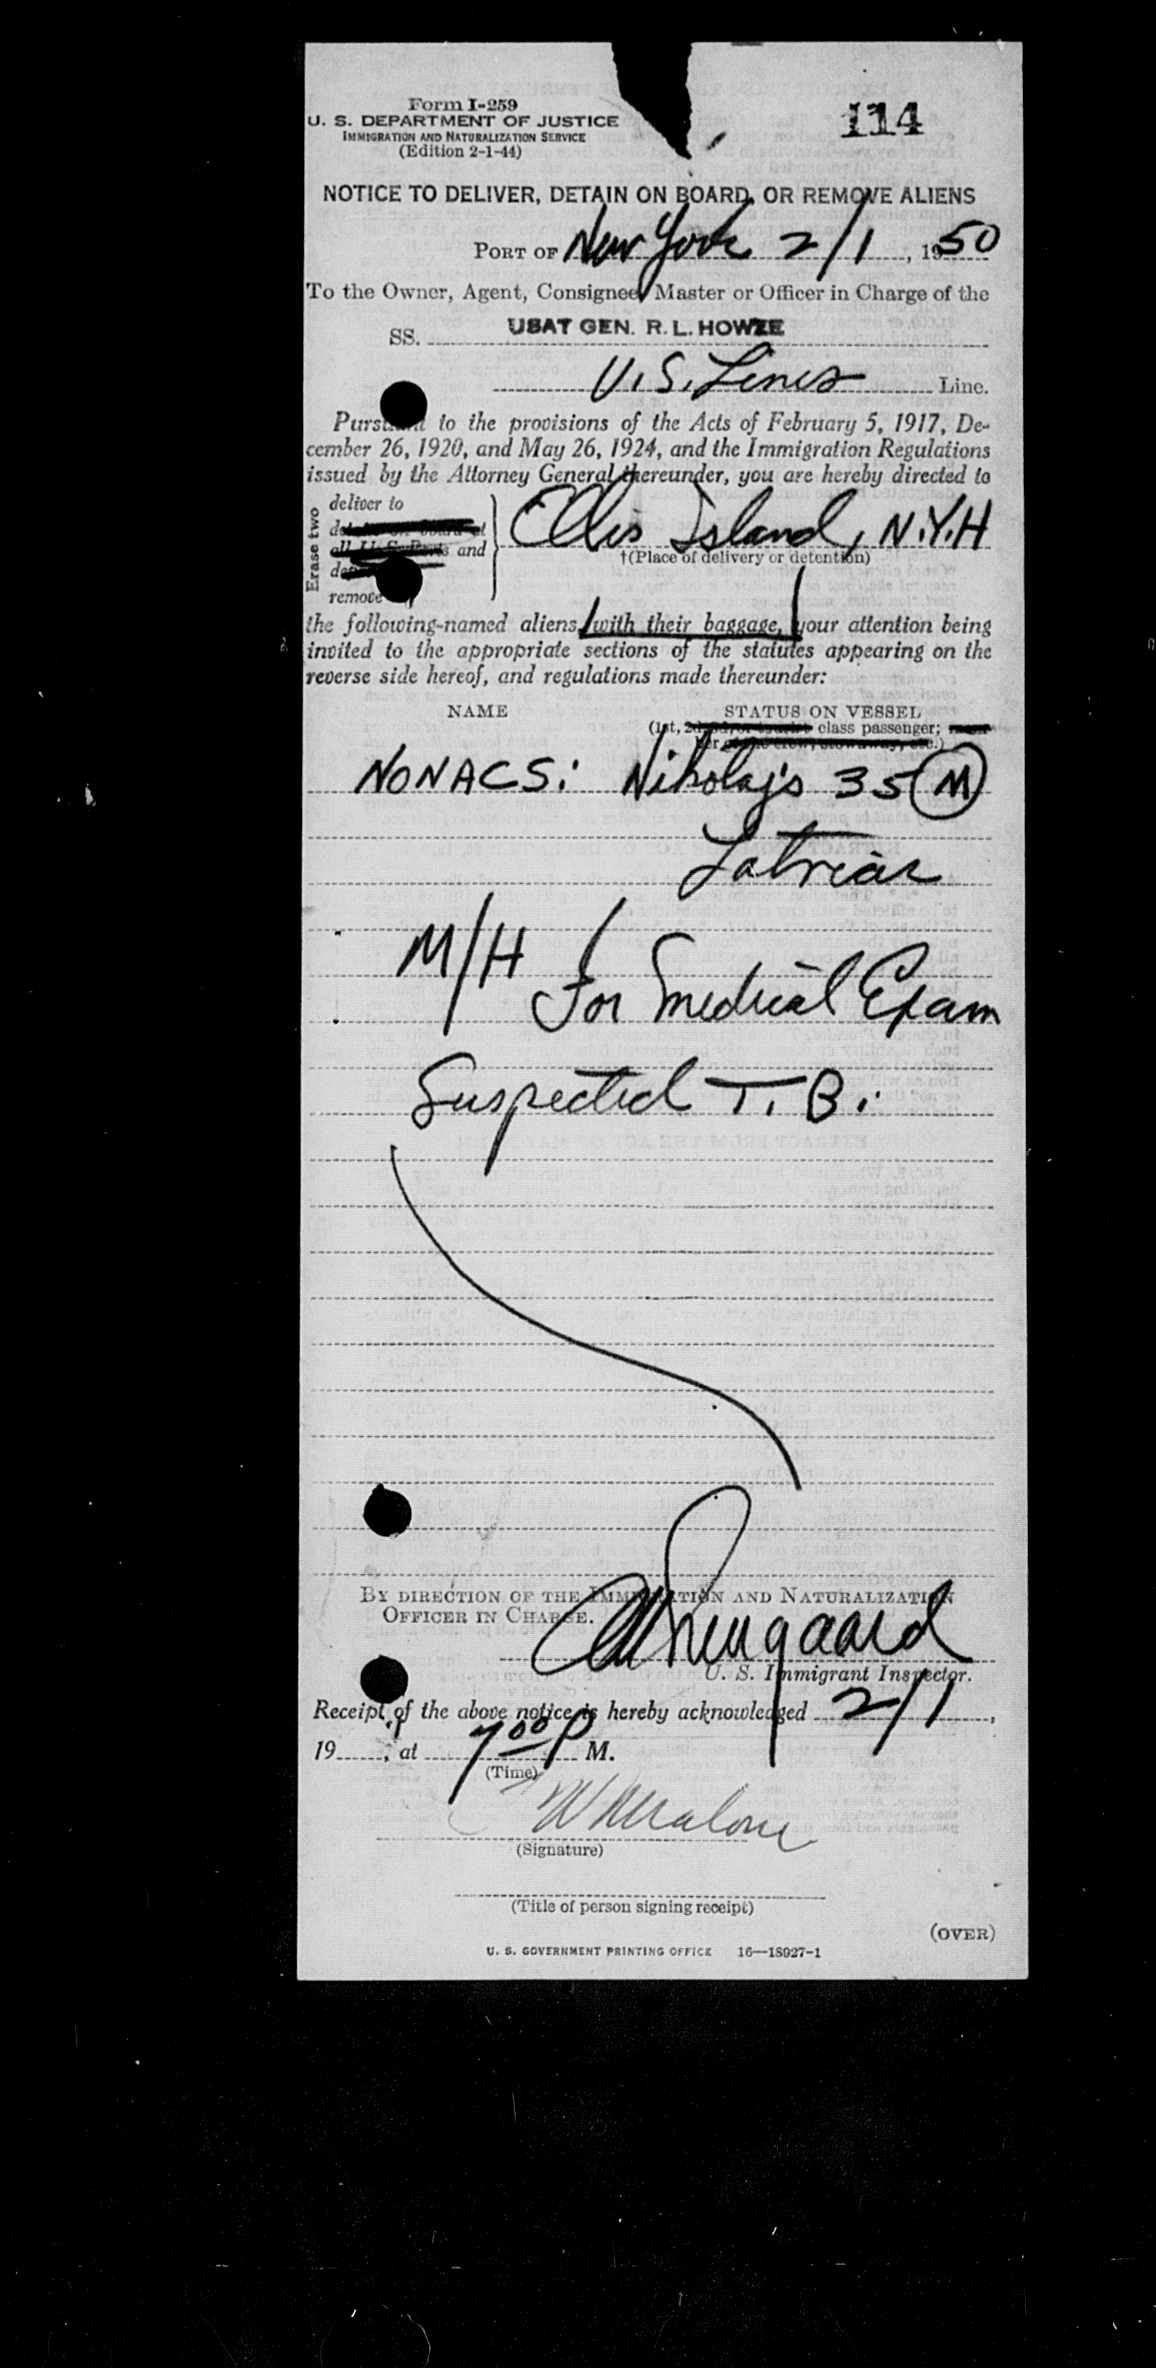 Form I-259
U. S. DEPARTMENT OF JUSTICE
IMMIGRATION AND NATURALIZATION SERVICE
(Edition 2-1-44)
114
NOTICE TO DELIVER, DETAIN ON BOARD, OR REMOVE ALIENS
PORT OF New York 2/1, 1950
To the Owner, Agent, Consignee, Master or Officer in Charge of the
SS. USAT GEN. R. L. HOWZE
U. S. Lines Line.
Pursuant to the provisions of the Acts of February 5, 1917, De-
cember 26, 1920, and May 26, 1924, and the Immigration Regulations
issued by the Attorney General thereunder, you are hereby directed to
Erase two
deliver to
detain on board at
all U. S. Ports and
remove
Ellis Island, N.Y.H
†(Place of delivery or detention)
the following-named aliens, with their baggage, your attention being
invited to the appropriate sections of the statutes appearing on the
reverse side hereof, and regulations made thereunder:
NAME STATUS ON VESSEL
(1st, 2d, 3d, or tourist class passenger; mem-
ber of the crew, stowaway, etc.)
NONACS: Nikolajs 35 M
Latvian
M/H For Medical Exam
Suspected T. B.
BY DIRECTION OF THE IMMIGRATION AND NATURALIZATION
OFFICER IN CHARGE.
U. S. Immigrant Inspector.
Receipt of the above notice is hereby acknowledged 2/1,
19, at 7 00 P M.
(Time)
W Malone
(Signature)
(Title of person signing receipt)
(OVER)
U. S. GOVERNMENT PRINTING OFFICE 16—18927-1